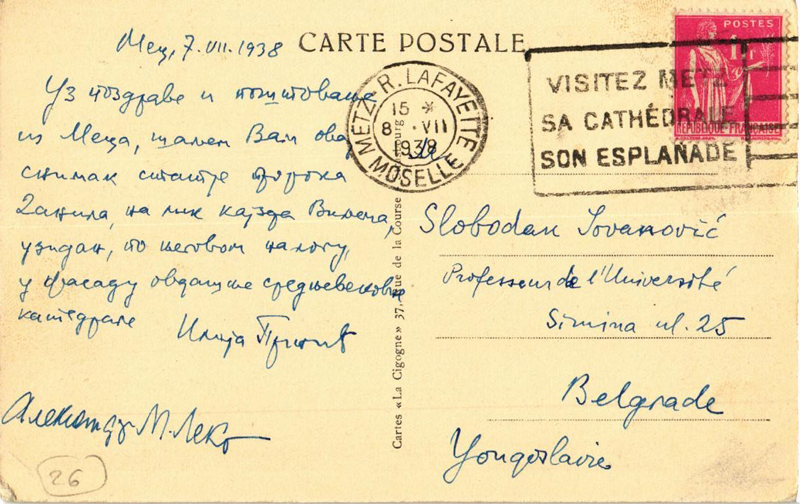 Мец, 7. VII. 1938
CARTE POSTALE
Уз поздраве и поштовања
из Меца, шаљем Вам овај
снимак статуе пророка
Данила, на лик кајзера Вилема,
узидан, по његовом налогу,
у фасаду овдашње средњевековне
катедрале
Илија
Александар М. Леко
26
METZ. R. LAFAYETTE
15 *
8 · VII
1938
MOSELLE
VISITEZ METZ
SA CATHÉDRALE
SON ESPLANADE
POSTES
1F
RÉPUBLIQUE FRANÇAISE
Cartes « La Cigogne » 37, Rue de la Course
Slobodan Jovanović
Professeur de l'Université
Simina ul. 25
Belgrade
Yougoslavie